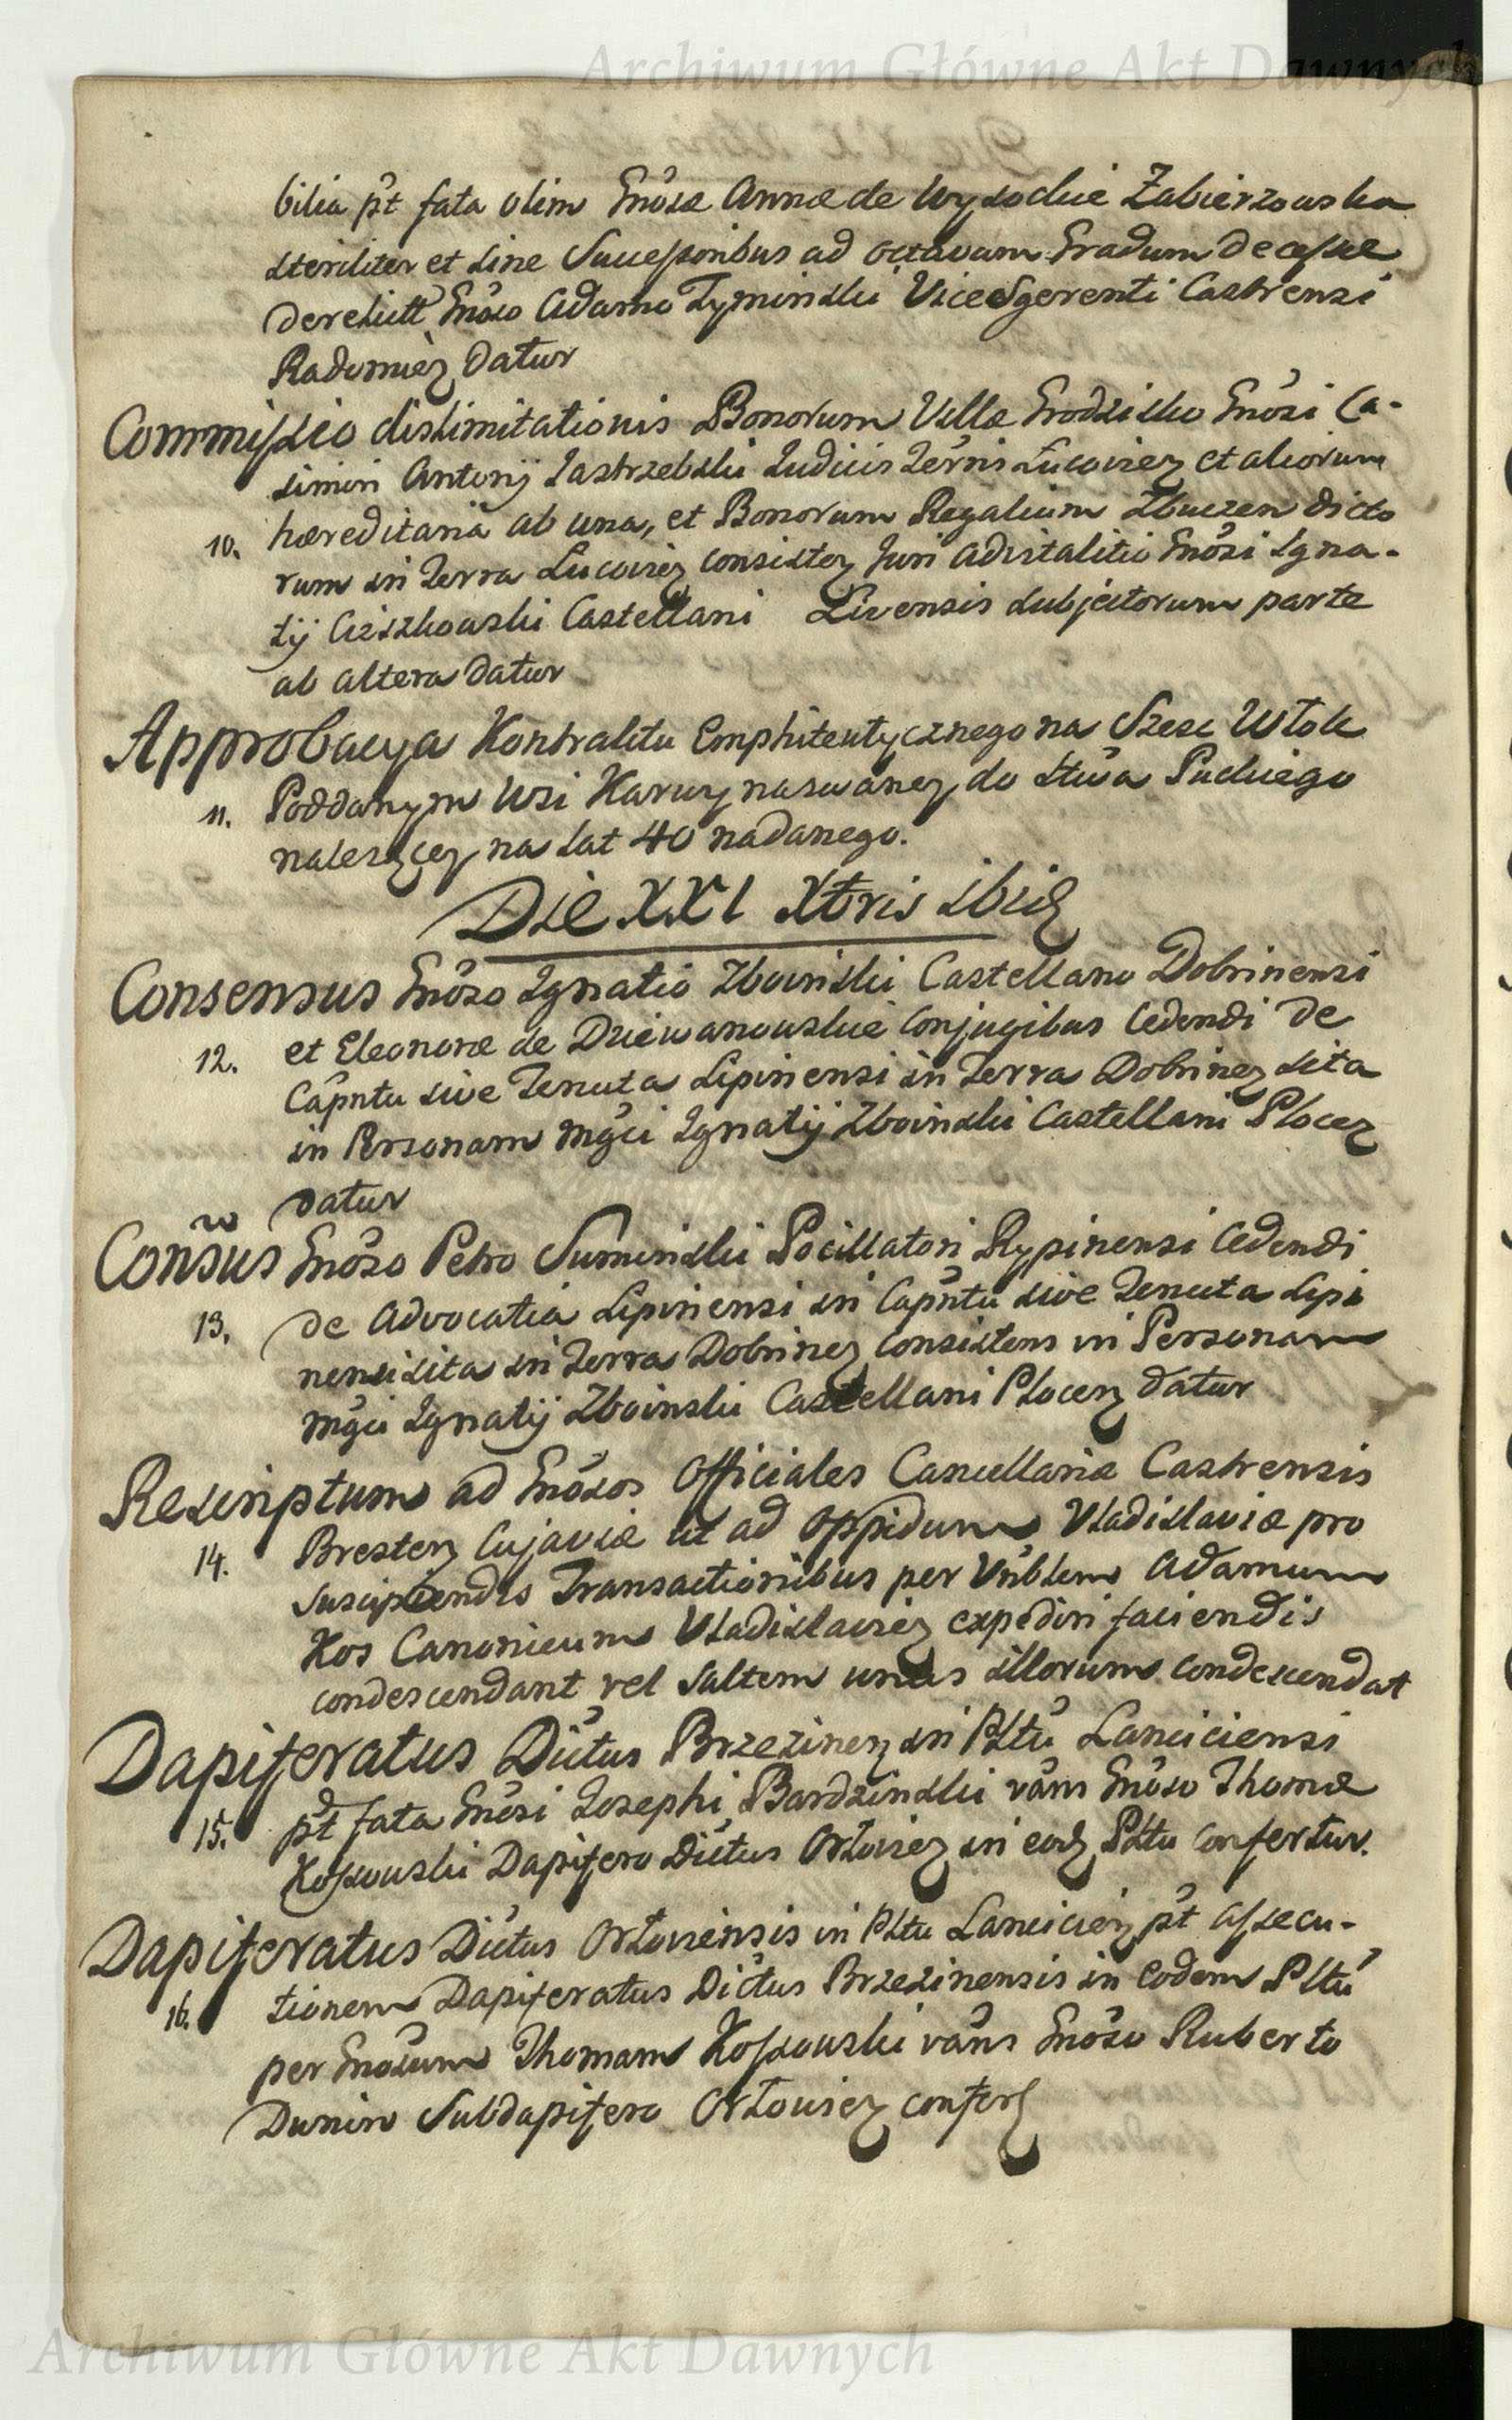 Archiwum Główne Akt Dawnych
bilia pt fata olim Gnosæ Annæ de Wysockie Zabierzowska
steriliter et sine Successoribus ad octavum Gradum decessæ
derelicti Gnoso Adamo Tyminski Vicesgerenti Castrensi
Radomień datur
Commissio dislimitationis Bonorum Villæ Grodzisko Gnosi Ca-
simiri Antonij Jastrzebski Judicis Terris Lucovien et aliorum
hæreditaria ab una, et Bonorum Regalium Zbuczen dicto
10. rum in Terra Lucovien consisten Juri advitalitio Gnosi Igna-
tij Cieszkowski Castellani Livensis subjectorum parte
ab altera datur
Approbacya Kontraktu Emphiteutycznego na Szesc Włok
11. Poddanym Wsi Karwy nazwaney do Stwa Puckiego
należącey na lat 40 nadanego.
Die XXI Xbris ibid
Consensus Gnoso Ignatio Zboinski Castellano Dobrinensi
12. et Eleonoræ de Dziewanowskie Conjugibus cedendi de
Capntu sive Tenuta Lipinensi in Terra Dobrinen sita
in Personam Mgci Ignatij Zboinski Castellani Plocen
datur
Consus Gnoso Petro Suminski Pocillatori Rypinensi cedendi
13. de Advocatia Lipinensi in Capntu sive Tenuta Lipi
nensi sita in Terra Dobrinen consistens in Personam
Mgci Ignatij Zboinski Castellani Plocen datur
Rescriptum ad Gnosos Officiales Cancellariæ Castrensis
14. Bresten Cujaviæ ut ad Oppidum Vladislaviæ pro
suscipiendis Transactionibus per Vnblem Adamum
Kos Canonicum Vladislavien expediri faciendis
condescendant vel saltem unus illorum condescendat
Dapiferatus Dictus Brzezinen in Pltu Lanciciensi
15. pt fata Gnosi Josephi Bardzinski vans Gnoso Thomæ
Kossowski Dapifero Dictus Orłovien in eod Pltu confertur.
Dapiferatus Dictus Orłoviensis in Pltu Lancicien pt assecu-
16. tionem Dapiferatus Dictus Brzezinensis in eodem Pltu
per Gnosum Thomam Kossowski vans Gnoso Ruberto
Dunin Subdapifero Orłovien confert
Archiwum Główne Akt Dawnych